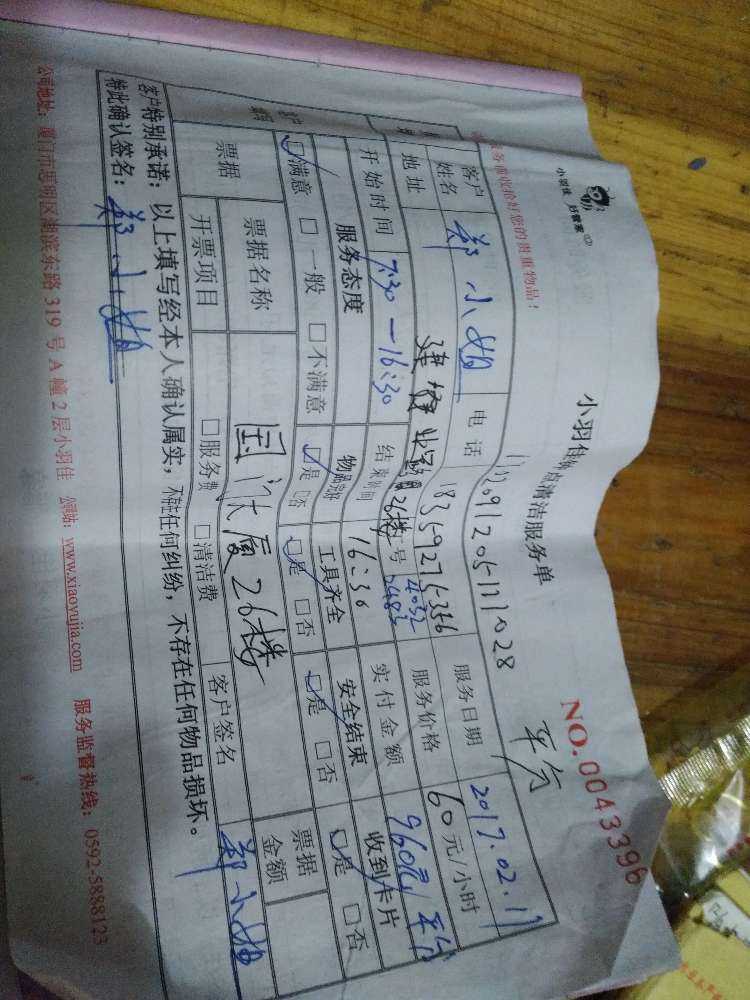 小羽佳 好管家
小羽佳 清洁服务单
NO.0043396
服务前请收拾好您的贵重物品!
平台
客户姓名 郑小姐 电话 服务日期 2017.02.17
地址 26楼 服务价格 60元/小时
开始时间 7:30—16:30 结束时间 16:30 实付金额 960元
服务态度 工具齐全 安全结束 收到卡片
☑满意 □一般 □不满意 ☑是 □否 ☑是 □否 ☑是 □否 ☑是 □否
票据 票据名称 大厦26楼 票据金额
开票项目 □服务费 □清洁费 客户签名 郑小姐
客户特别承诺:以上填写经本人确认属实,不存在任何纠纷,不存在任何物品损坏。
特此确认签名: 郑小姐
公司地址:厦门市思明区湖滨东路 319 号 A 幢 2 层小羽佳 公司网站:www.xiaoyujia.com 服务监督热线:0592-5888123